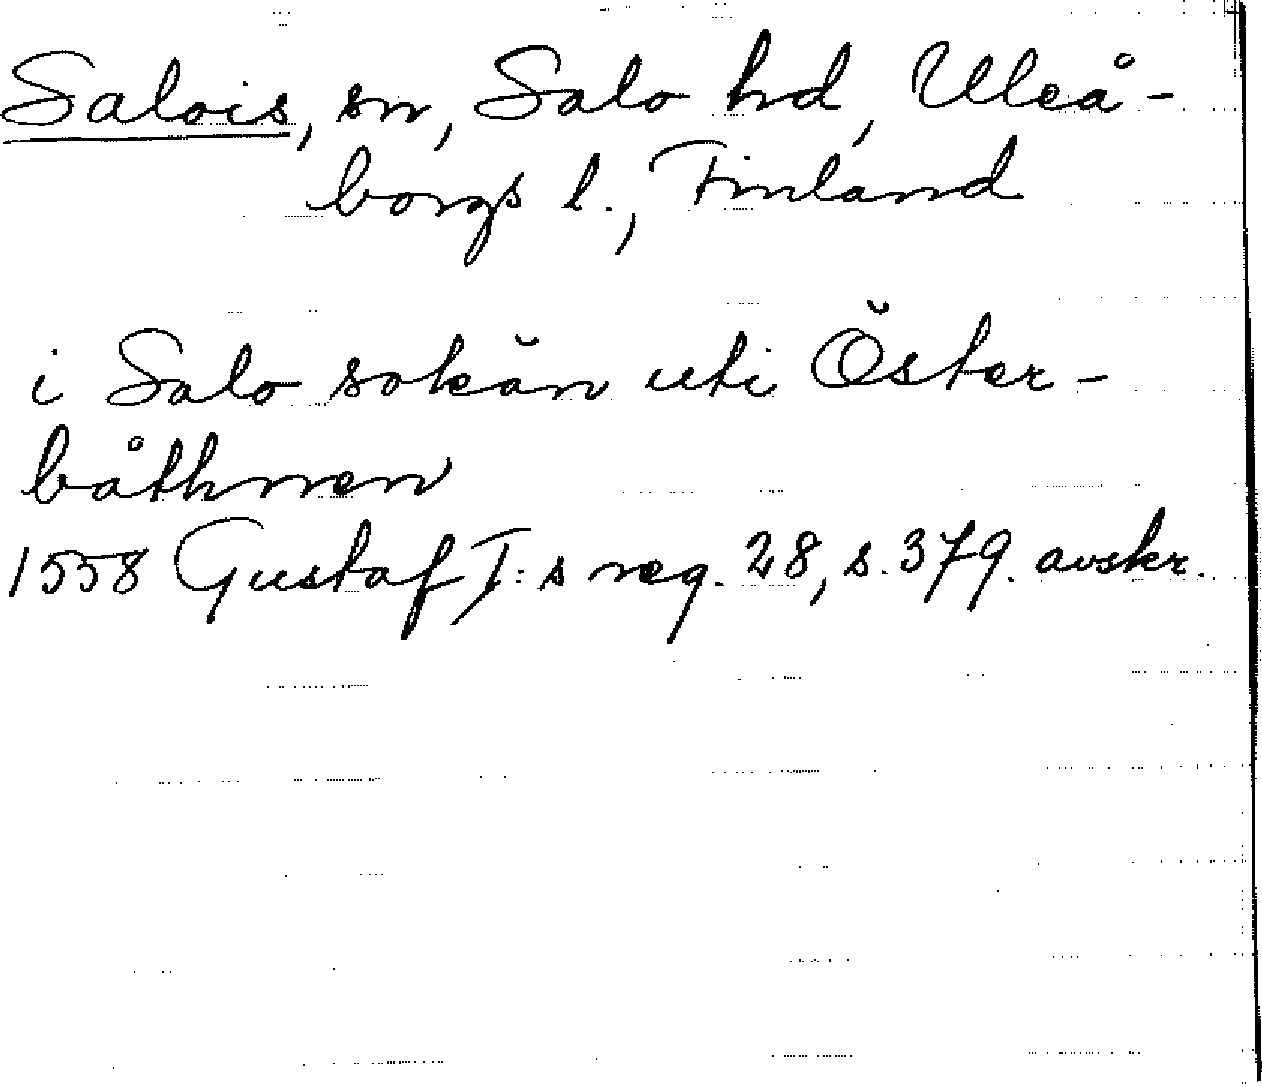 Salois, sn, Salo hd, Uleå-
borgs l., Finland
i Salo sokän uti Öster-
båthnen
1558 Gustaf I:s reg. 28, s. 379. avskr.